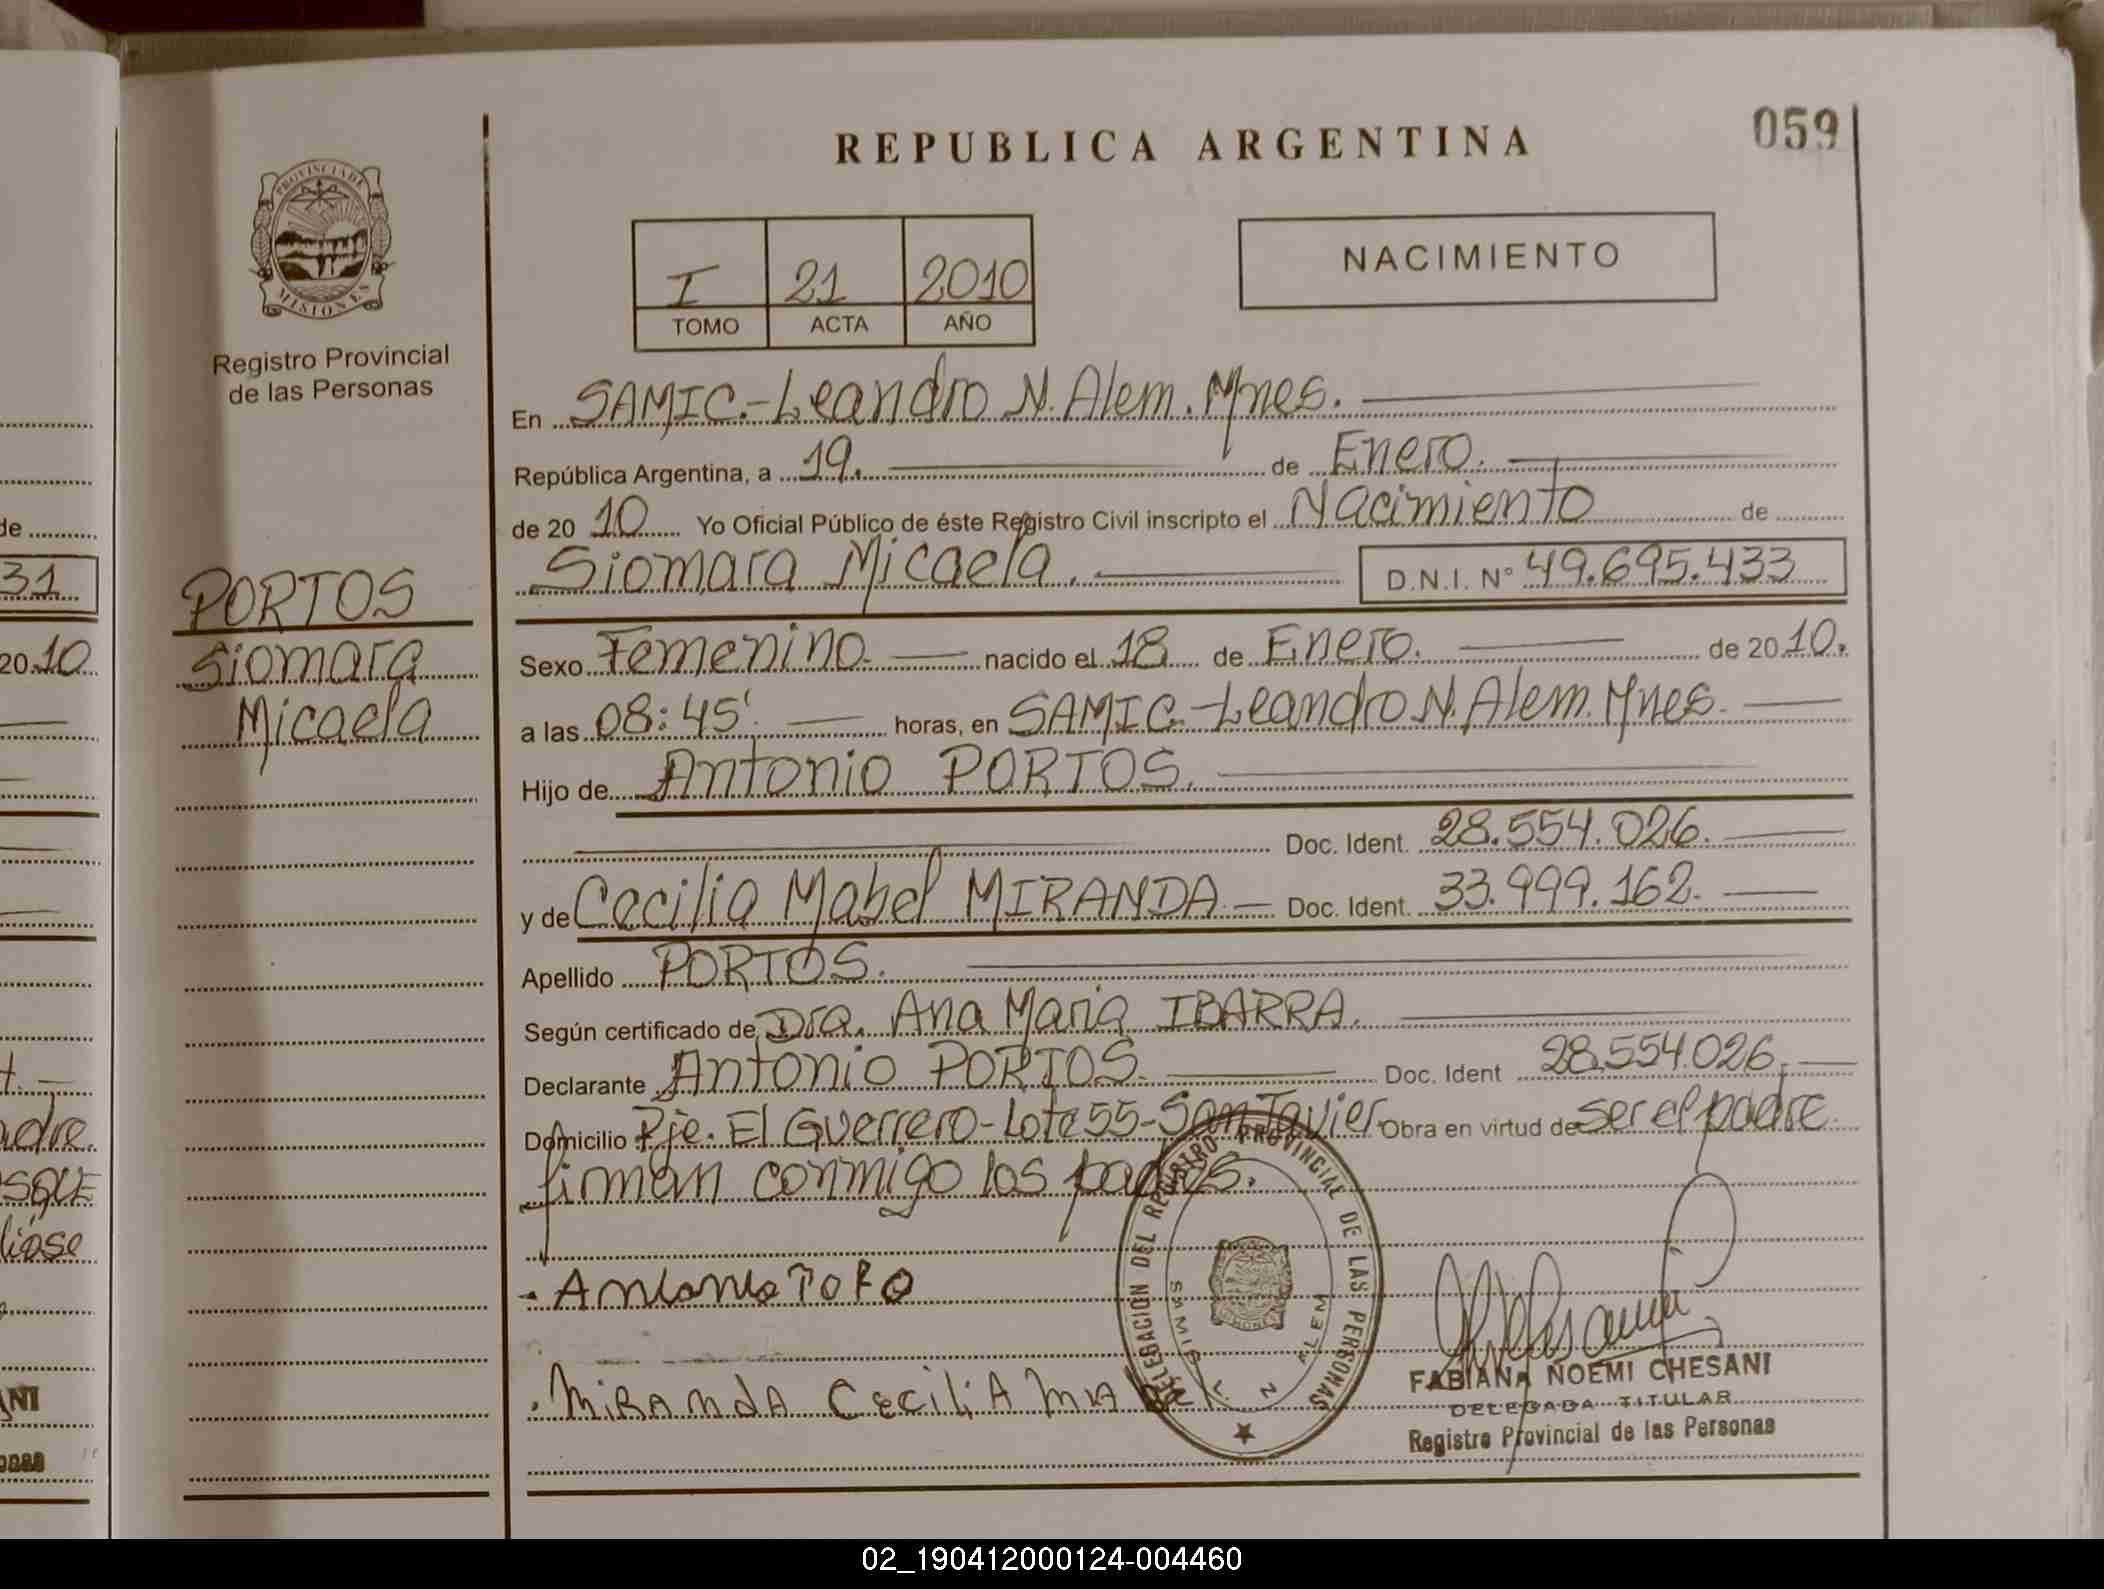 REPUBLICA ARGENTINA
059
PROVINCIA DE
MISIONES
Registro Provincial
de las Personas
I 21 2010
TOMO ACTA AÑO
NACIMIENTO
En SAMIC.-Leandro N. Alem. Mnes.
República Argentina, a 19. de Enero.
de 20 10 Yo Oficial Público de éste Registro Civil inscripto el Nacimiento de
Siomara Micaela. D.N.I. Nº 49.695.433
PORTOS
Siomara
Micaela
Sexo Femenino. nacido el 18 de Enero. de 20 10.
a las 08:45'. horas, en SAMIC.-Leandro N. Alem. Mnes.
Hijo de Antonio PORTOS.
Doc. Ident. 28.554.026.
y de Cecilia Mabel MIRANDA Doc. Ident. 33.999.162.
Apellido PORTOS.
Según certificado de Dra. Ana Maria IBARRA.
Declarante Antonio PORTOS. Doc. Ident 28.554.026.
Domicilio Pje. El Guerrero-Lote 55-San Javier. Obra en virtud de ser el padre.
firman conmigo los padres.
DELEGACION DEL REGISTRO PROVINCIAL DE LAS PERSONAS
SAMIC L. N. ALEM
MIRANDA CECILIA MABEL
FABIANA NOEMI CHESANI
DELEGADA TITULAR
Registro Provincial de las Personas
de
31
20 10
adre.
NI
02_190412000124-004460